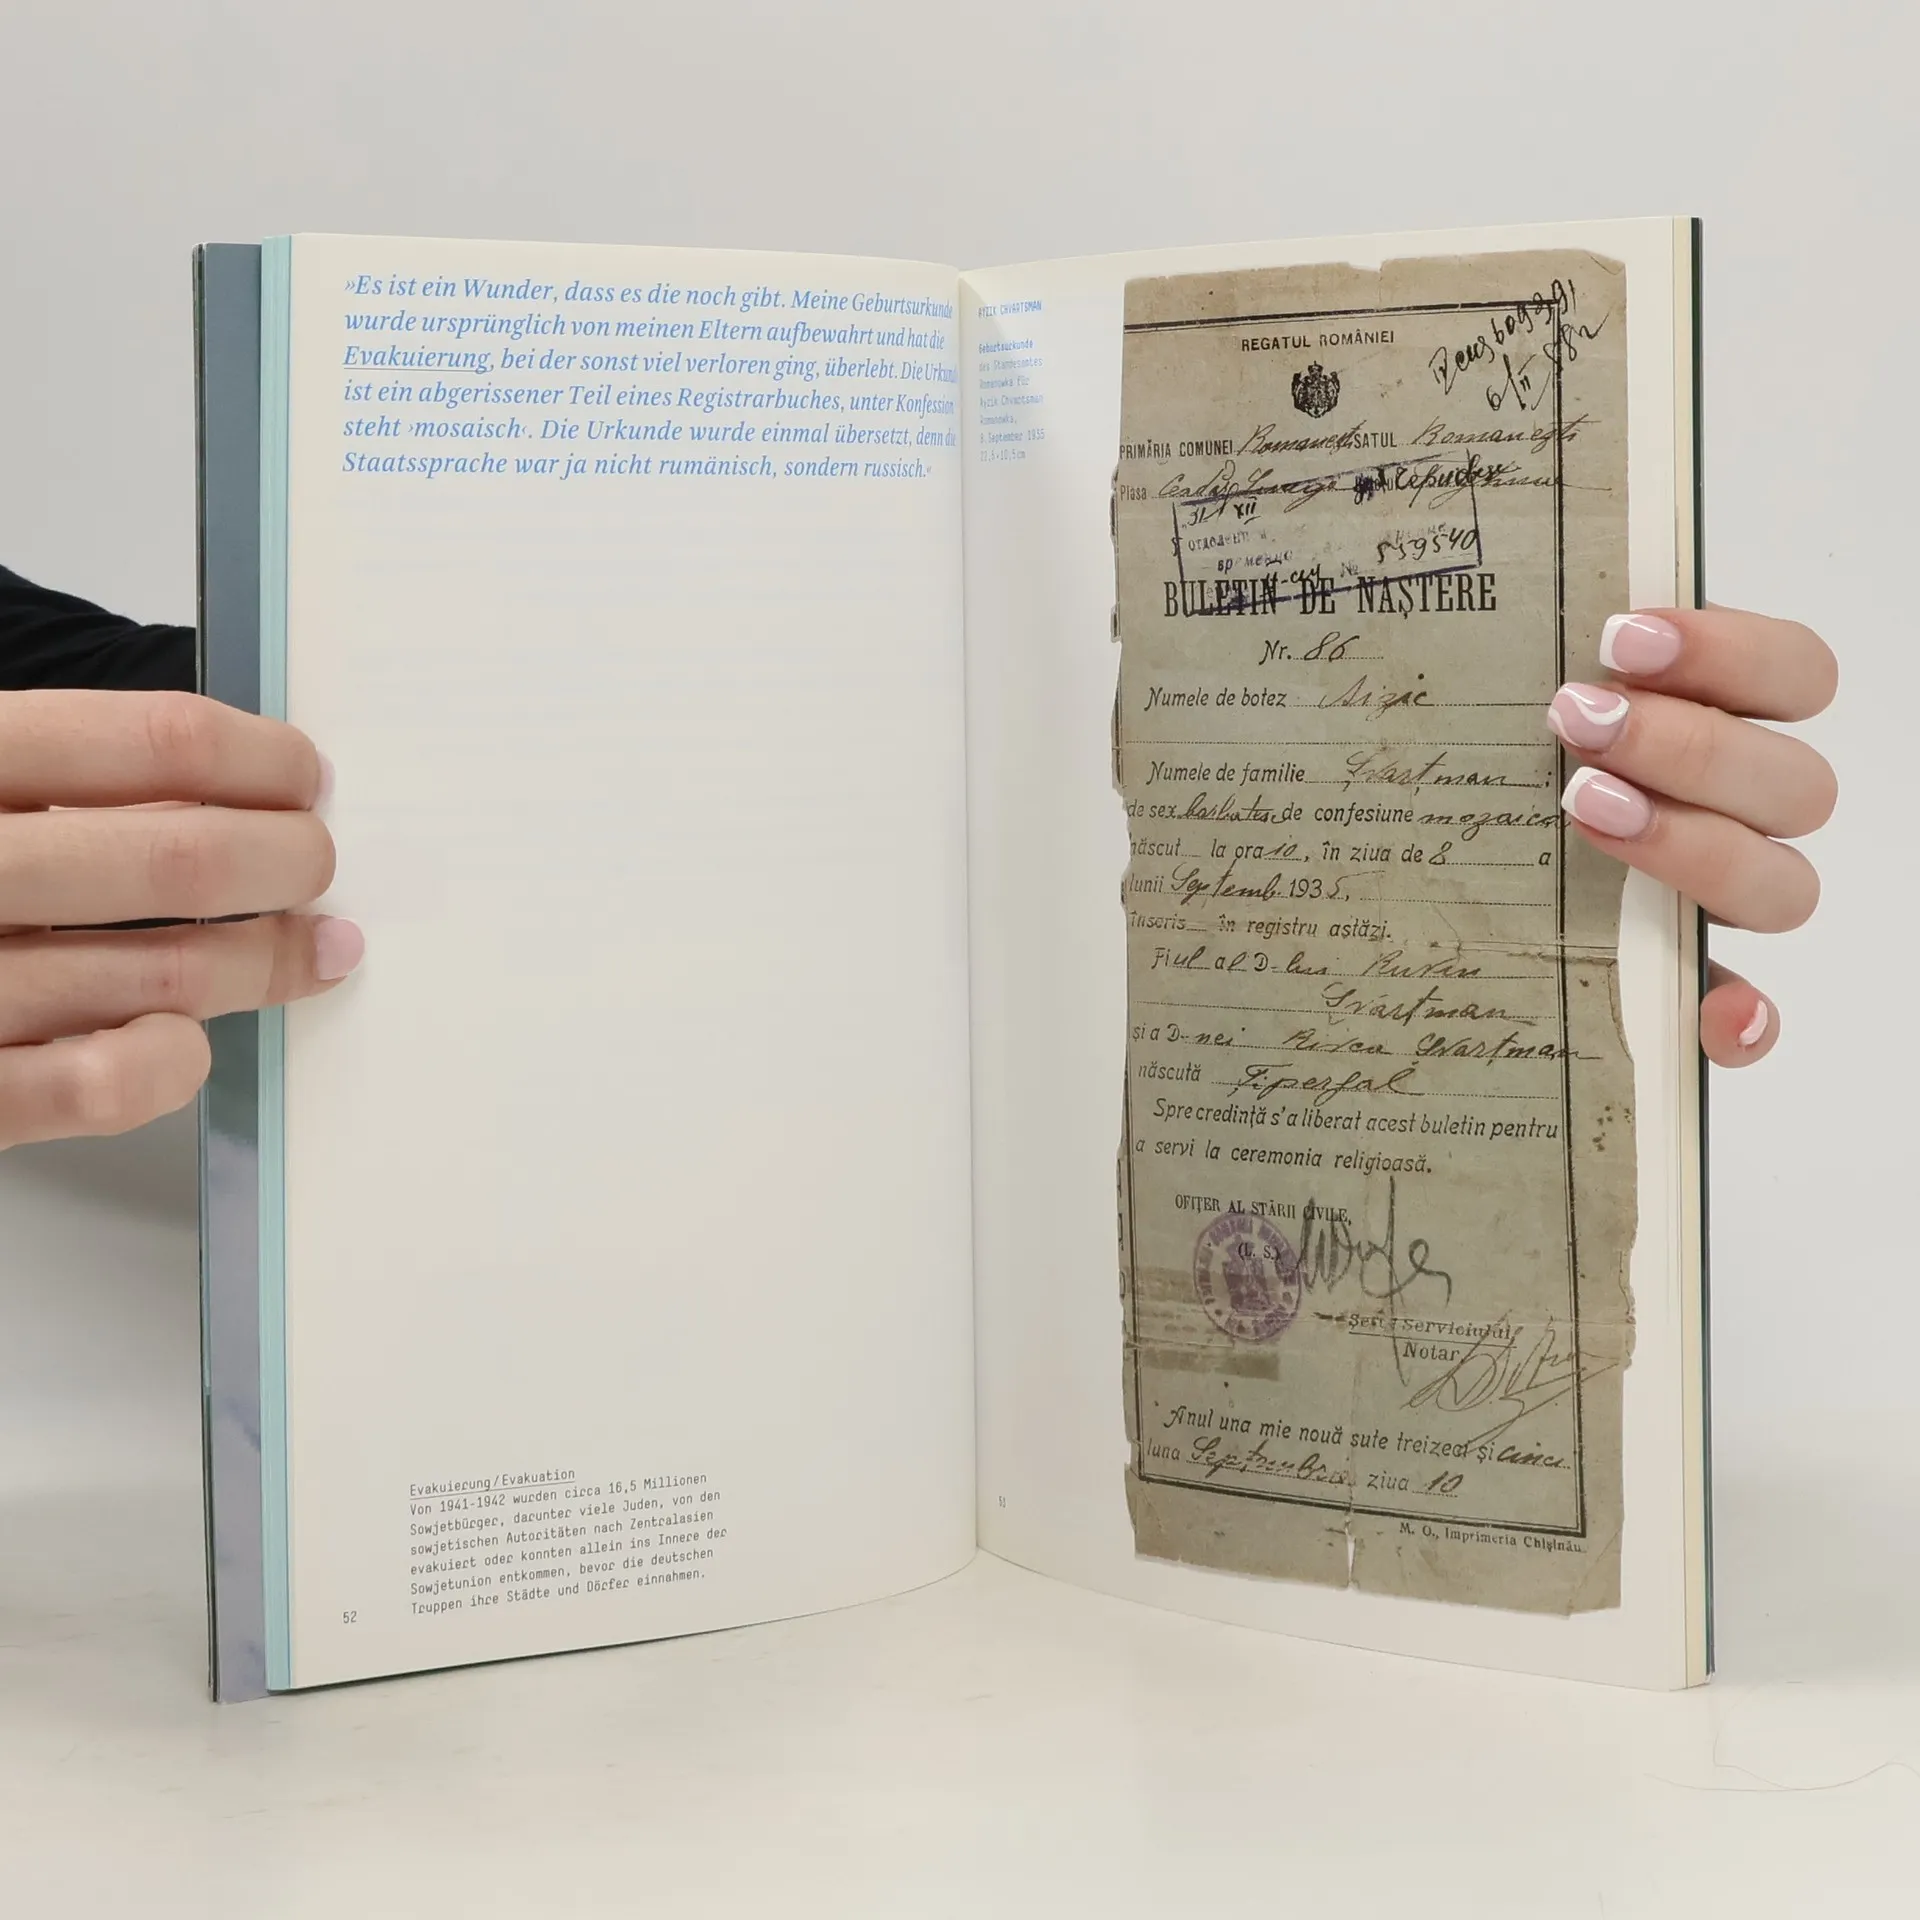 »Es ist ein Wunder, dass es die noch gibt. Meine Geburtsurkunde
wurde ursprünglich von meinen Eltern aufbewahrt und hat die
Evakuierung, bei der sonst viel verloren ging, überlebt. Die Urkunde
ist ein abgerissener Teil eines Registrarbuches, unter Konfession
steht ›mosaisch‹. Die Urkunde wurde einmal übersetzt, denn die
Staatssprache war ja nicht rumänisch, sondern russisch.«
Evakuierung/Evakuation
Von 1941-1942 wurden circa 16,5 Millionen
Sowjetbürger, darunter viele Juden, von den
sowjetischen Autoritäten nach Zentralasien
evakuiert oder konnten allein ins Innere der
Sowjetunion entkommen, bevor die deutschen
Truppen ihre Städte und Dörfer einnahmen.
52
AYZIK CHVARTSMAN
Geburtsurkunde
des Standesamtes
Romanowka für
Ayzik Chvartsman
Romanowka,
8. September 1935
REGATUL ROMÂNIEI
PRIMĂRIA COMUNEI Romanești SATUL Romanești
Plasa
31 XII
539540
BULETIN DE NAȘTERE
Nr. 86
Numele de botez Aizic
Numele de familie Șvarțman ;
de sex barbatesc de confesiune mozaica
născut la ora 10, în ziua de 8 a
lunii Septemb. 1935,
Înscris în registru astăzi.
Fiul al D-lui Ruvin
Șvarțman
și a D-nei Rivca Șvarțman
născută Țiperfal
Spre credință s'a liberat acest buletin pentru
a servi la ceremonia religioasă.
OFIȚER AL STĂRII CIVILE,
(L. S.)
Șeful Serviciului,
Notar
Anul una mie nouă sute treizeci și cinci
luna Septembrie ziua 10
M. O., Imprimeria Chișinău.
51